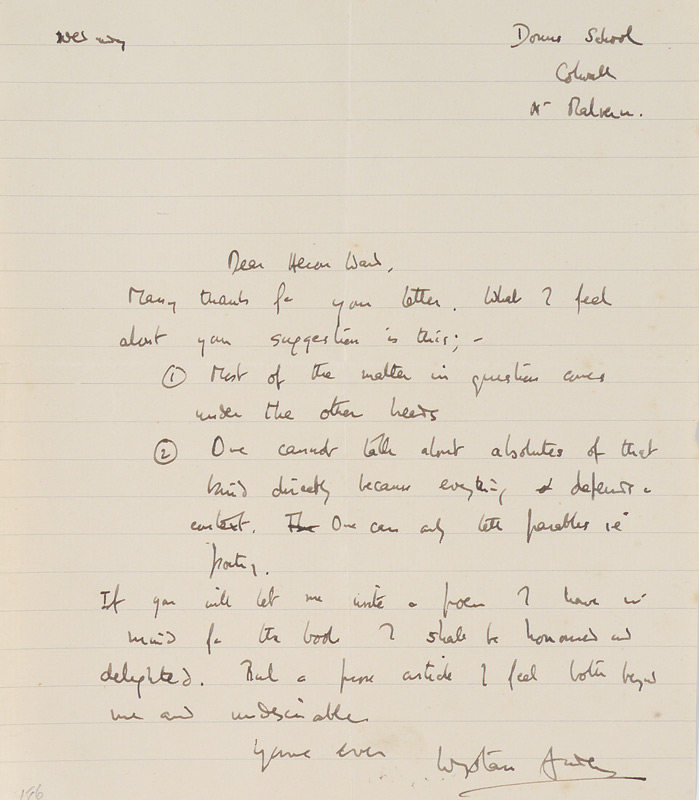 Downs School
Colwall
Nr Malvern.
Dear Heron Ward,
Many thanks for your letter. What I feel
about your suggestion is this; -
① Most of the matter in question comes
under the other heads
② One cannot talk about absolutes of that
kind directly because everything depends on
context. One can only tell parables ie
poetry.
If you will let me write a poem I have in
mind for the book I shall be honoured and
delighted. But a prose article I feel both beyond
me and undesirable
Yours ever Wystan Auden